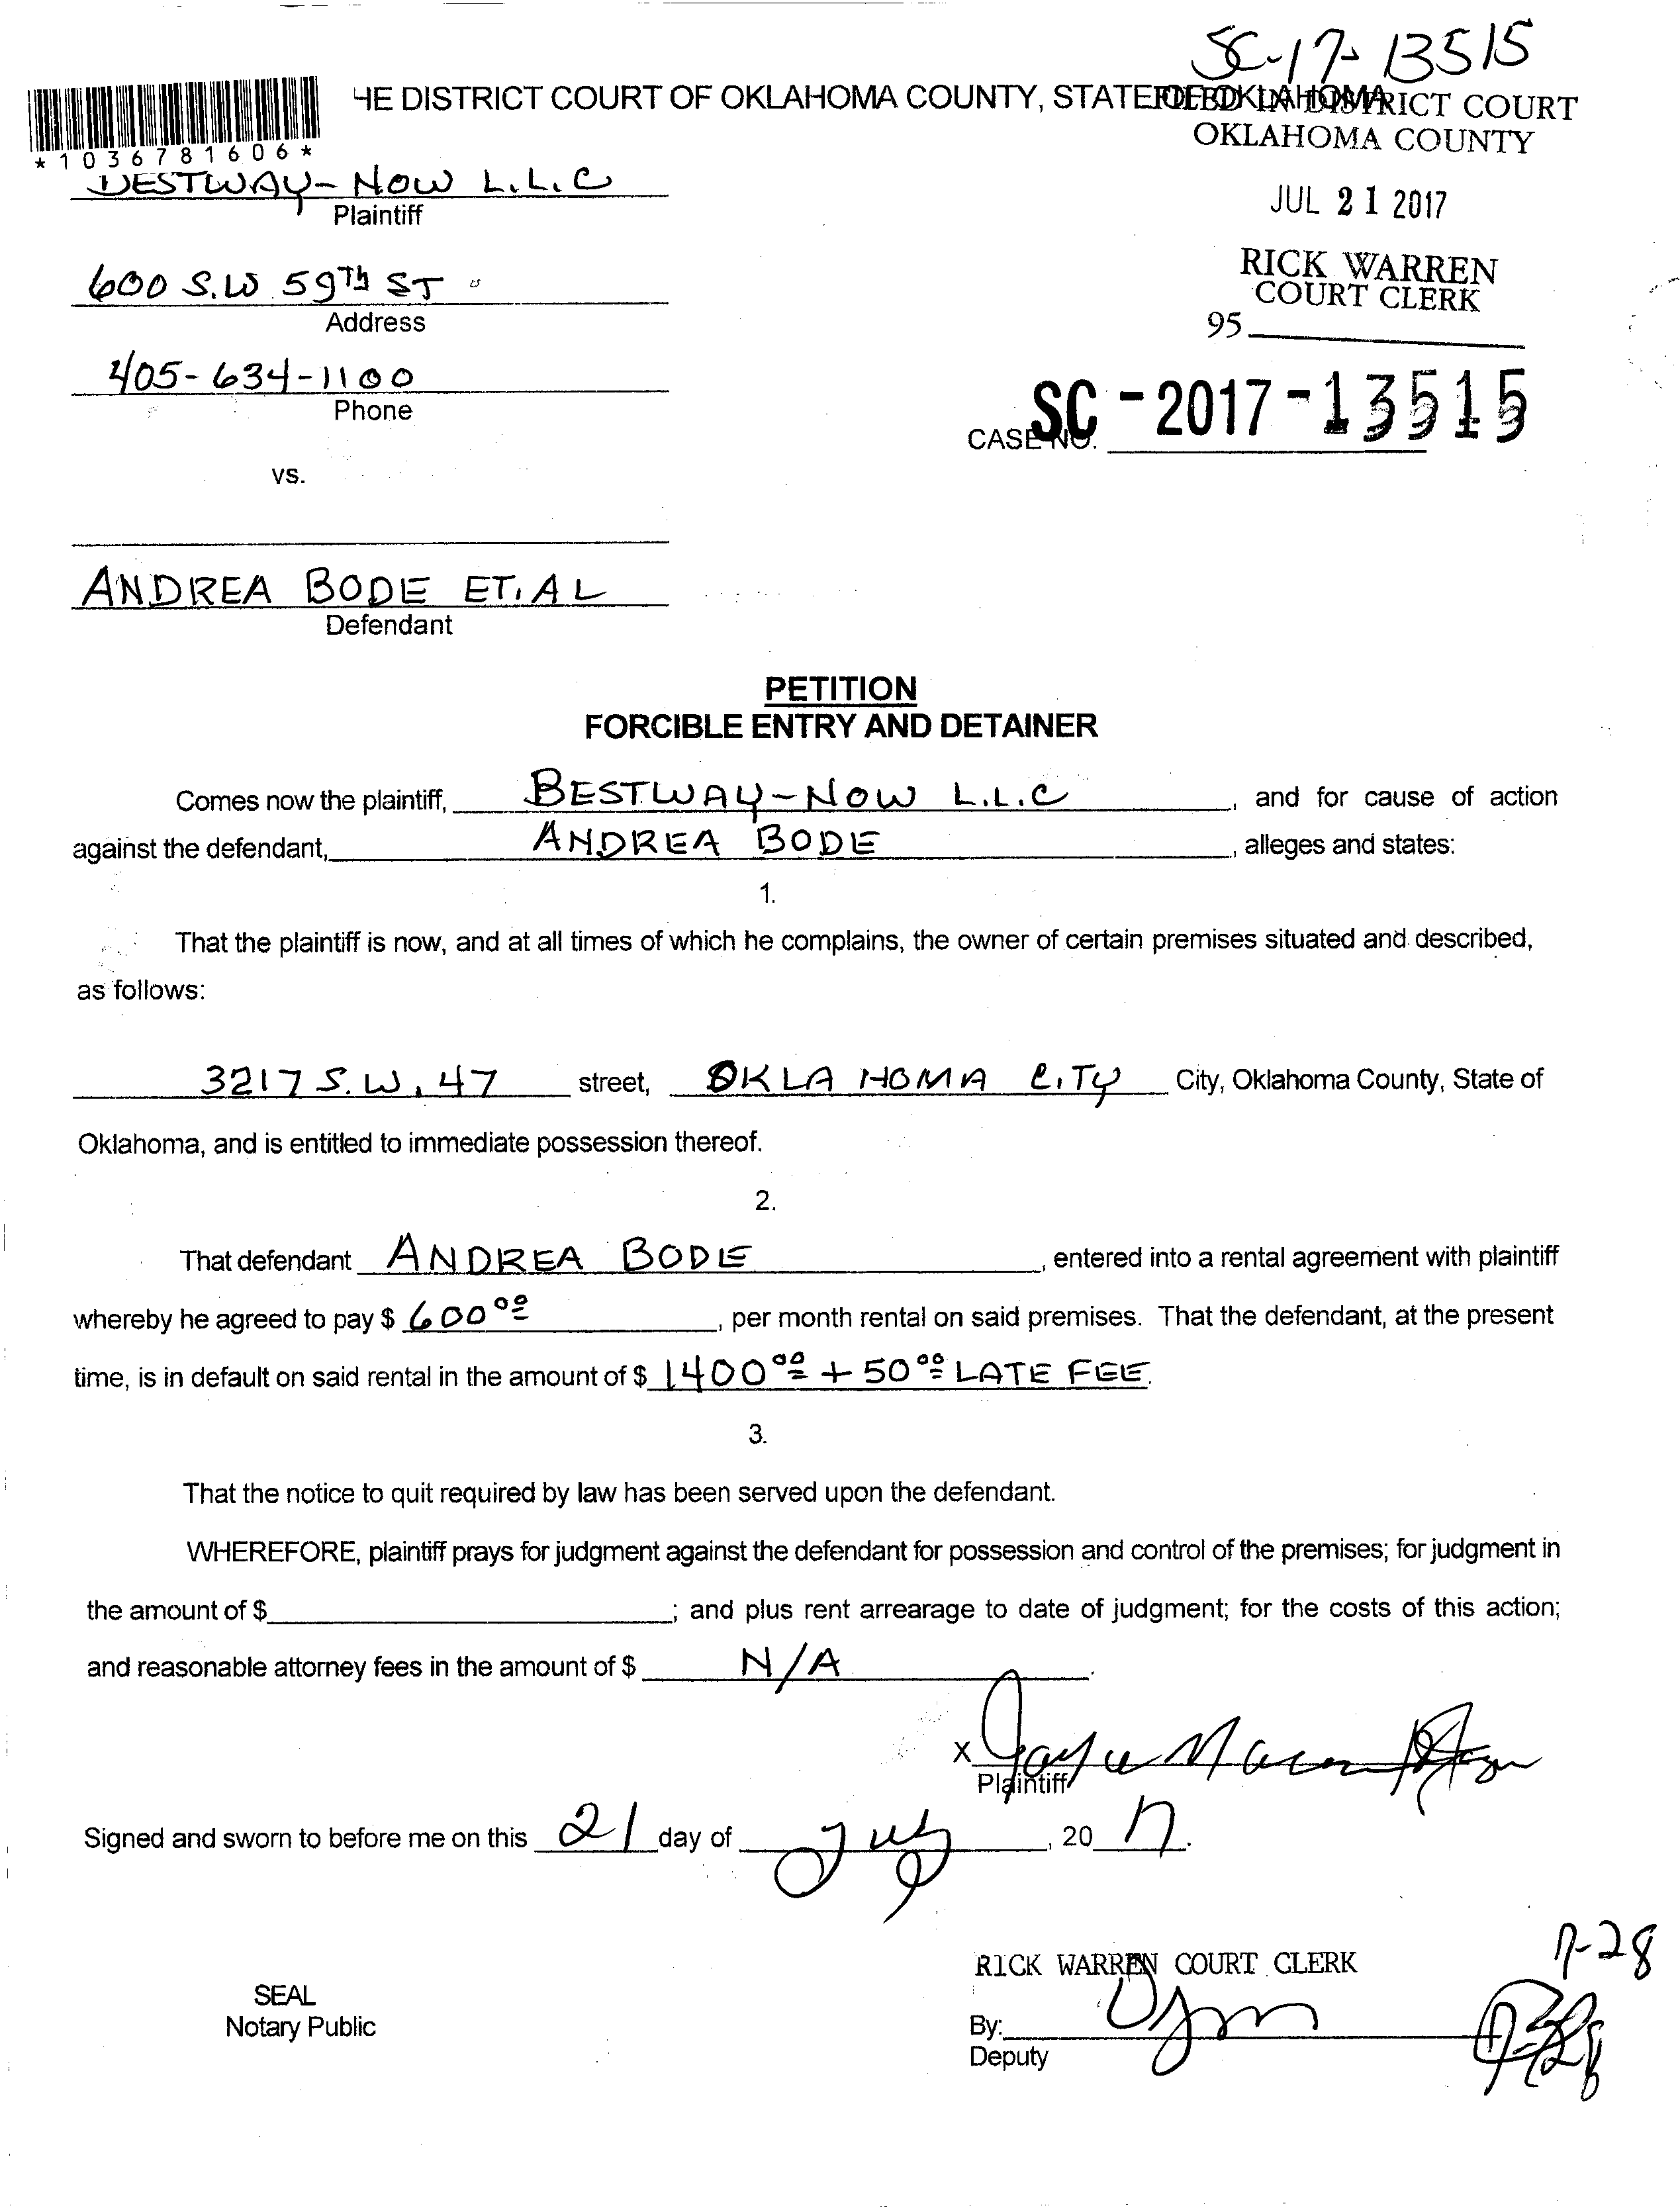 SC-17-13515
HE DISTRICT COURT OF OKLAHOMA COUNTY, STATE OF OKLAHOMA
FILED IN DISTRICT COURT
OKLAHOMA COUNTY
*1036781606*
BESTWAY-NOW L.L.C
Plaintiff
JUL 21 2017
600 S.W 59Th ST
Address
RICK WARREN
COURT CLERK
95
405-634-1100
Phone
CASE NO. SC-2017-13515
vs.
ANDREA BODE ET.AL
Defendant
PETITION
FORCIBLE ENTRY AND DETAINER
Comes now the plaintiff, BESTWAY-NOW L.L.C, and for cause of action
against the defendant, ANDREA BODE, alleges and states:
1.
That the plaintiff is now, and at all times of which he complains, the owner of certain premises situated and described,
as follows:
3217 S.W. 47 street, OKLAHOMA CITY City, Oklahoma County, State of
Oklahoma, and is entitled to immediate possession thereof.
2.
That defendant ANDREA BODE, entered into a rental agreement with plaintiff
whereby he agreed to pay $ 600 00, per month rental on said premises. That the defendant, at the present
time, is in default on said rental in the amount of $ 1400 00 + 50 00 LATE FEE.
3.
That the notice to quit required by law has been served upon the defendant.
WHEREFORE, plaintiff prays for judgment against the defendant for possession and control of the premises; for judgment in
the amount of $; and plus rent arrearage to date of judgment; for the costs of this action;
and reasonable attorney fees in the amount of $ N/A.
X
Plaintiff
Signed and sworn to before me on this 21 day of July, 2017.
7-28
RICK WARREN COURT CLERK
SEAL
Notary Public
By:
Deputy